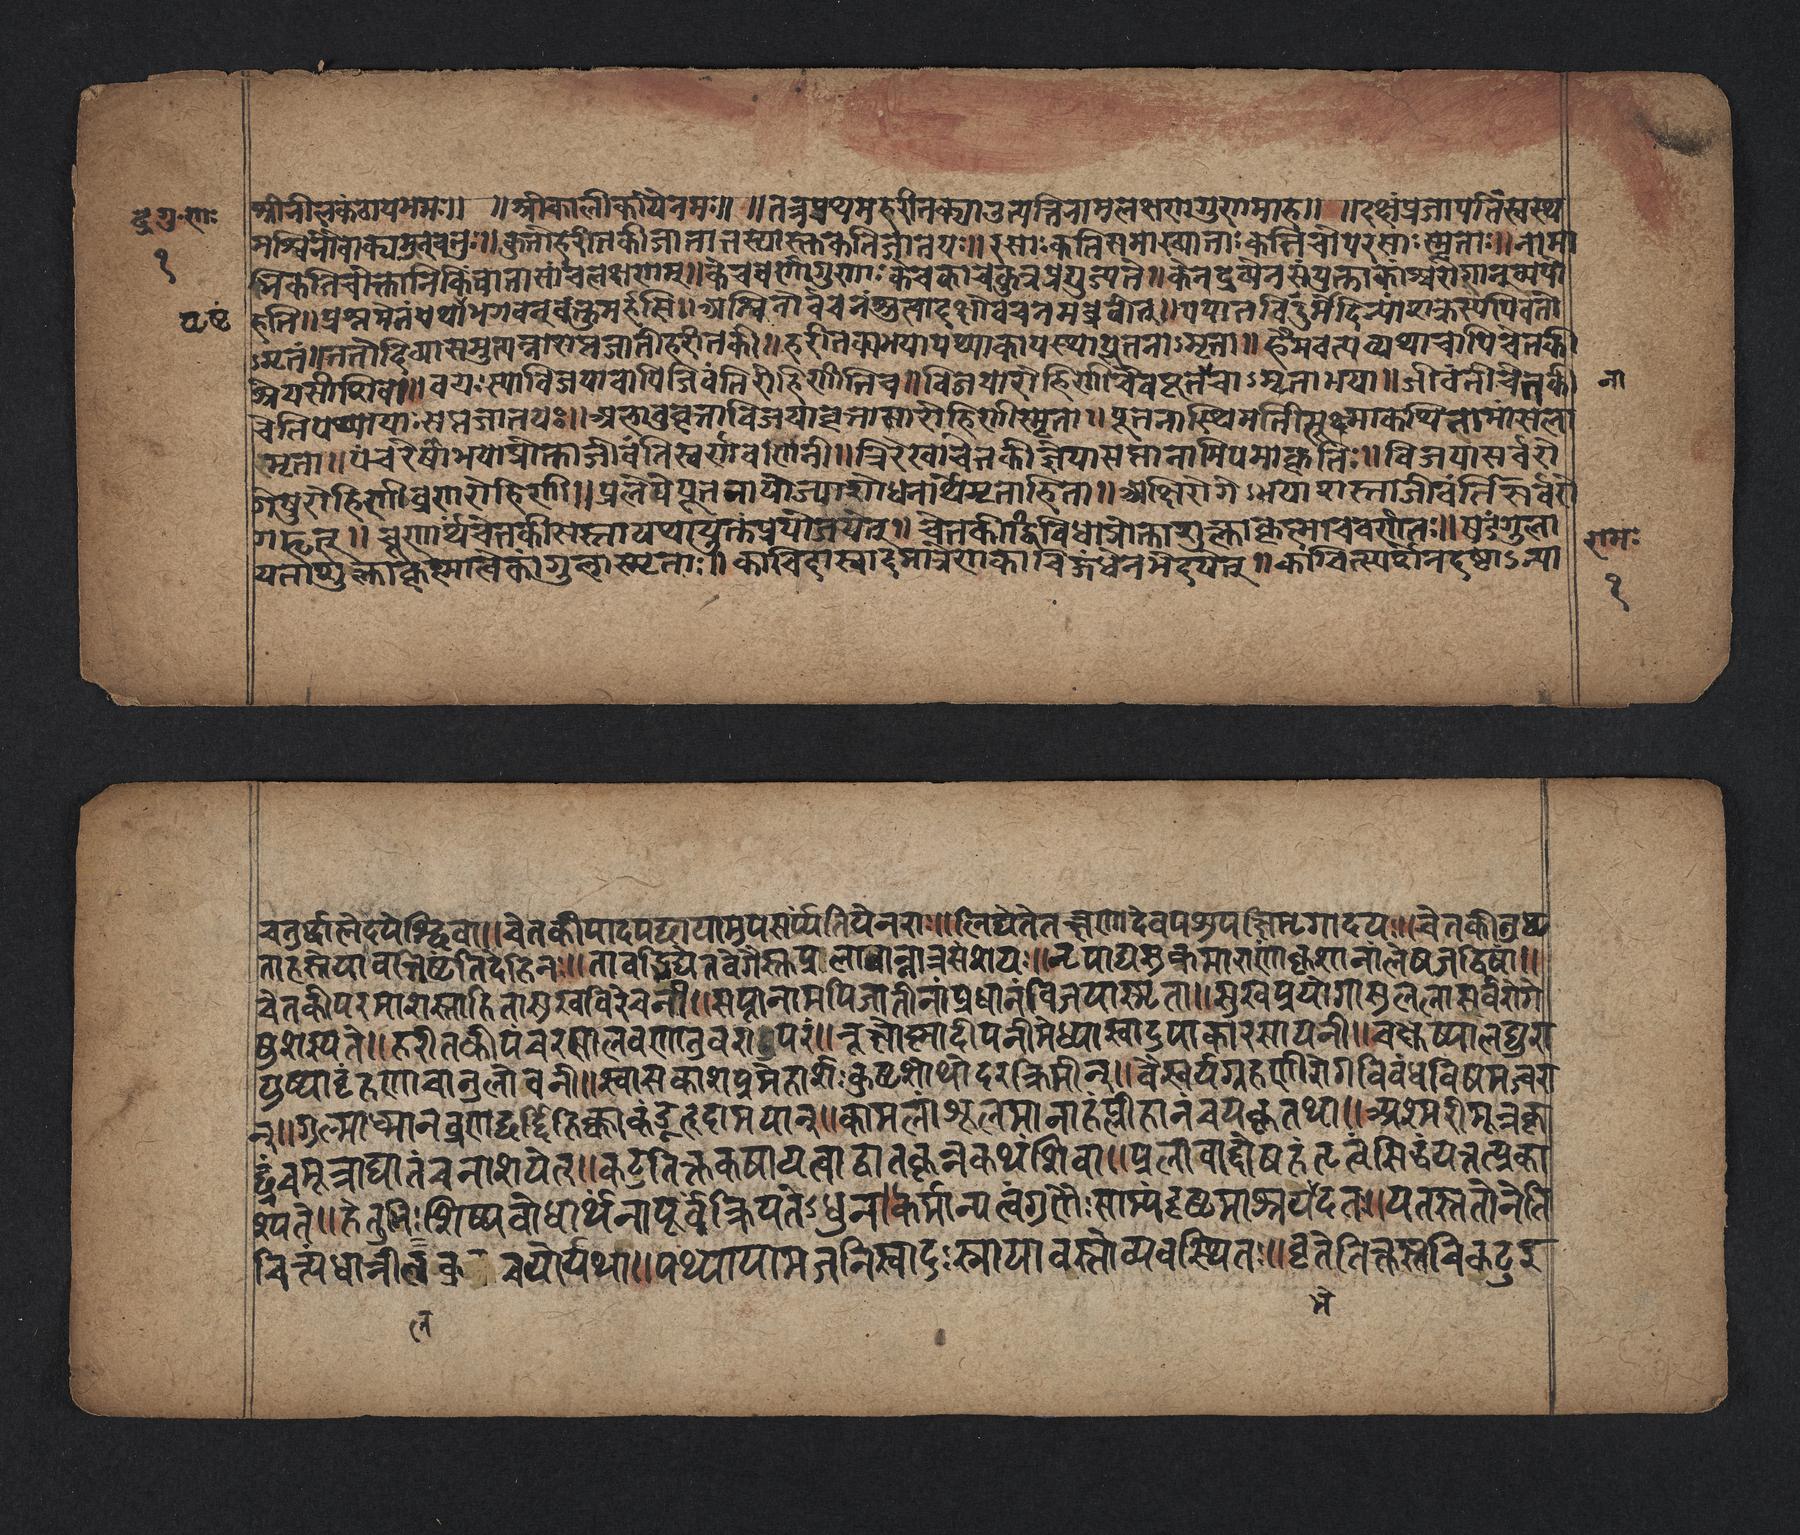 द्र.गु.सा
१
श्रीनीलकंठायनमः।। ।।श्रीकालीकायैनमः।। ।।तत्रप्रथमहरीतक्याउत्पत्तिनामलक्षणगुणामाह।। ।।दक्षंप्रजापतिंस्वस्थ
मश्विनौवाक्यमुचतुः।।कुतोहरीतकीजातातस्यास्तुकतिजातयः।।रसाःकतिसमाख्याताःकतिचोपरसाःस्मृताः।।नामा
निकतिचोक्तानिकिंवातासांचलक्षणम्।।केचवर्णागुणाःकेचकाचकुत्रप्रयुज्यते।।केनद्रव्येनसंयुक्ताकांश्चरोगान्व्यपो
हति।।प्रश्नमेतंयथाभगवन्वक्तुमर्हसि।।अश्विनोवचनंश्रुत्वादक्षोवचनमब्रवीत्।।पपातविंदुर्मेदिन्यांशक्रस्यपिवतो
ऽमृतं।।ततोदिव्यासमुत्पन्नासप्तजातीहरीतकी।।हरीतक्यभयापथ्याकायस्थापुतनाऽमृता।।हैमवत्यव्यथाचापिचेतकी
श्रेयसीशिवा।।वयःस्थाविजयाचापिजिवंतिरोहिणीतिच।।विजयारोहिणीचैवपूतनाचाऽमृताभया।।जीवंतीचेतकी
ना
चेतिपथ्यायाःसप्तजातयः।।अलाबुवृत्ताविजयावृत्तासारोहिणीस्मृता।।पूतनास्थिमतीसूक्ष्माकथितामांसला
मृता।।पंचरेषाभयाप्रोक्ताजीवंतिस्वर्णवर्णिनी।।त्रिरेखाचेतकीज्ञेयासप्तानामियमाकृतिः।।विजयासर्वरो
गेषुरोहिणीव्रणरोहिणी।।प्रलेपेपूतनायोज्याशोधनार्थेमृताहिता।।अक्षिरोगेऽभयाशस्ताजीवंतिसर्वरो
गहृत्।।चूर्णार्थेचेतकीशस्तायथायुक्तंप्रयोजयेत्।।चेतकीद्विविधाप्रोक्ताशुक्लाकृष्णाचवर्णतः।।षडंगुला
यताशुक्लाकृष्णात्वेकांगुलास्मृताः।।काचिदास्वादमात्रेणकाचिद्गंधेनभेदयेत्।।काचित्स्पर्शेनदृष्ट्याऽन्या
रामः
१
चतुर्द्धाभेदयेच्छिवा।।चेतकीपादपच्छायामुपसर्प्पंतियेनराः।।भिद्यंतेतत्क्षणादेवपशुपक्षिमृगादयः।।चेतकीतुधृ
ताहस्तेयावत्तिष्टतिदेहिनः।।तावद्भिद्येतवेगैस्तुप्रभावान्नात्रसंशयः।।नृपाद्यसुकुमाराणांकृशानांभेषजद्विषां।।
चेतकीपरमाशस्ताहितासुखविरेचनी।।सप्तानामपिजातीनांप्रधानंविजयास्मृता।।सुखप्रयोगासुलभासर्वरोगे
षुशस्यते।।हरीतकीपंचरसालवणातुवरापरं।।रूक्षोष्णादीपनीमेध्यास्वादुपाकारसायनी।।चक्षुष्यालघुरा
युष्याबृंहणाचानुलोमनी।।स्वासकाशप्रमेहार्शःकुष्टशोथोदरक्रिमीन्।।वैस्वर्यग्रहणीरोगविवंधविषमज्वरा
न्।।गुल्माध्मानव्रणच्छर्द्दिहिक्काकंडूहृदामयान्।।कामलांशूलमानाहंप्लीहानंचयकृत्तथा।।अश्मरीमूत्रकृ
च्छ्रंचमूत्राघातंचनाशयेत्।।कटुतिक्तकषायत्वाद्वातकृन्नकथंशिवा।।प्रभावाद्दोषहंतृत्वंसिद्धंयत्तत्प्रका
श्यते।।हेतुभिःशिष्यवोधार्थंनापूर्वंक्रियतेऽधुना।कर्मान्यत्वंगुणैःसाम्यंदृष्टमाश्रयभेदतः।।यतस्ततोनेति
चिंत्यंधात्रीलकुचयोर्यथा।।पथ्यायामज्जनिस्वादुःस्नायावम्लोव्यवस्थितः।।वृंतेतिक्तस्त्वचिकटुर